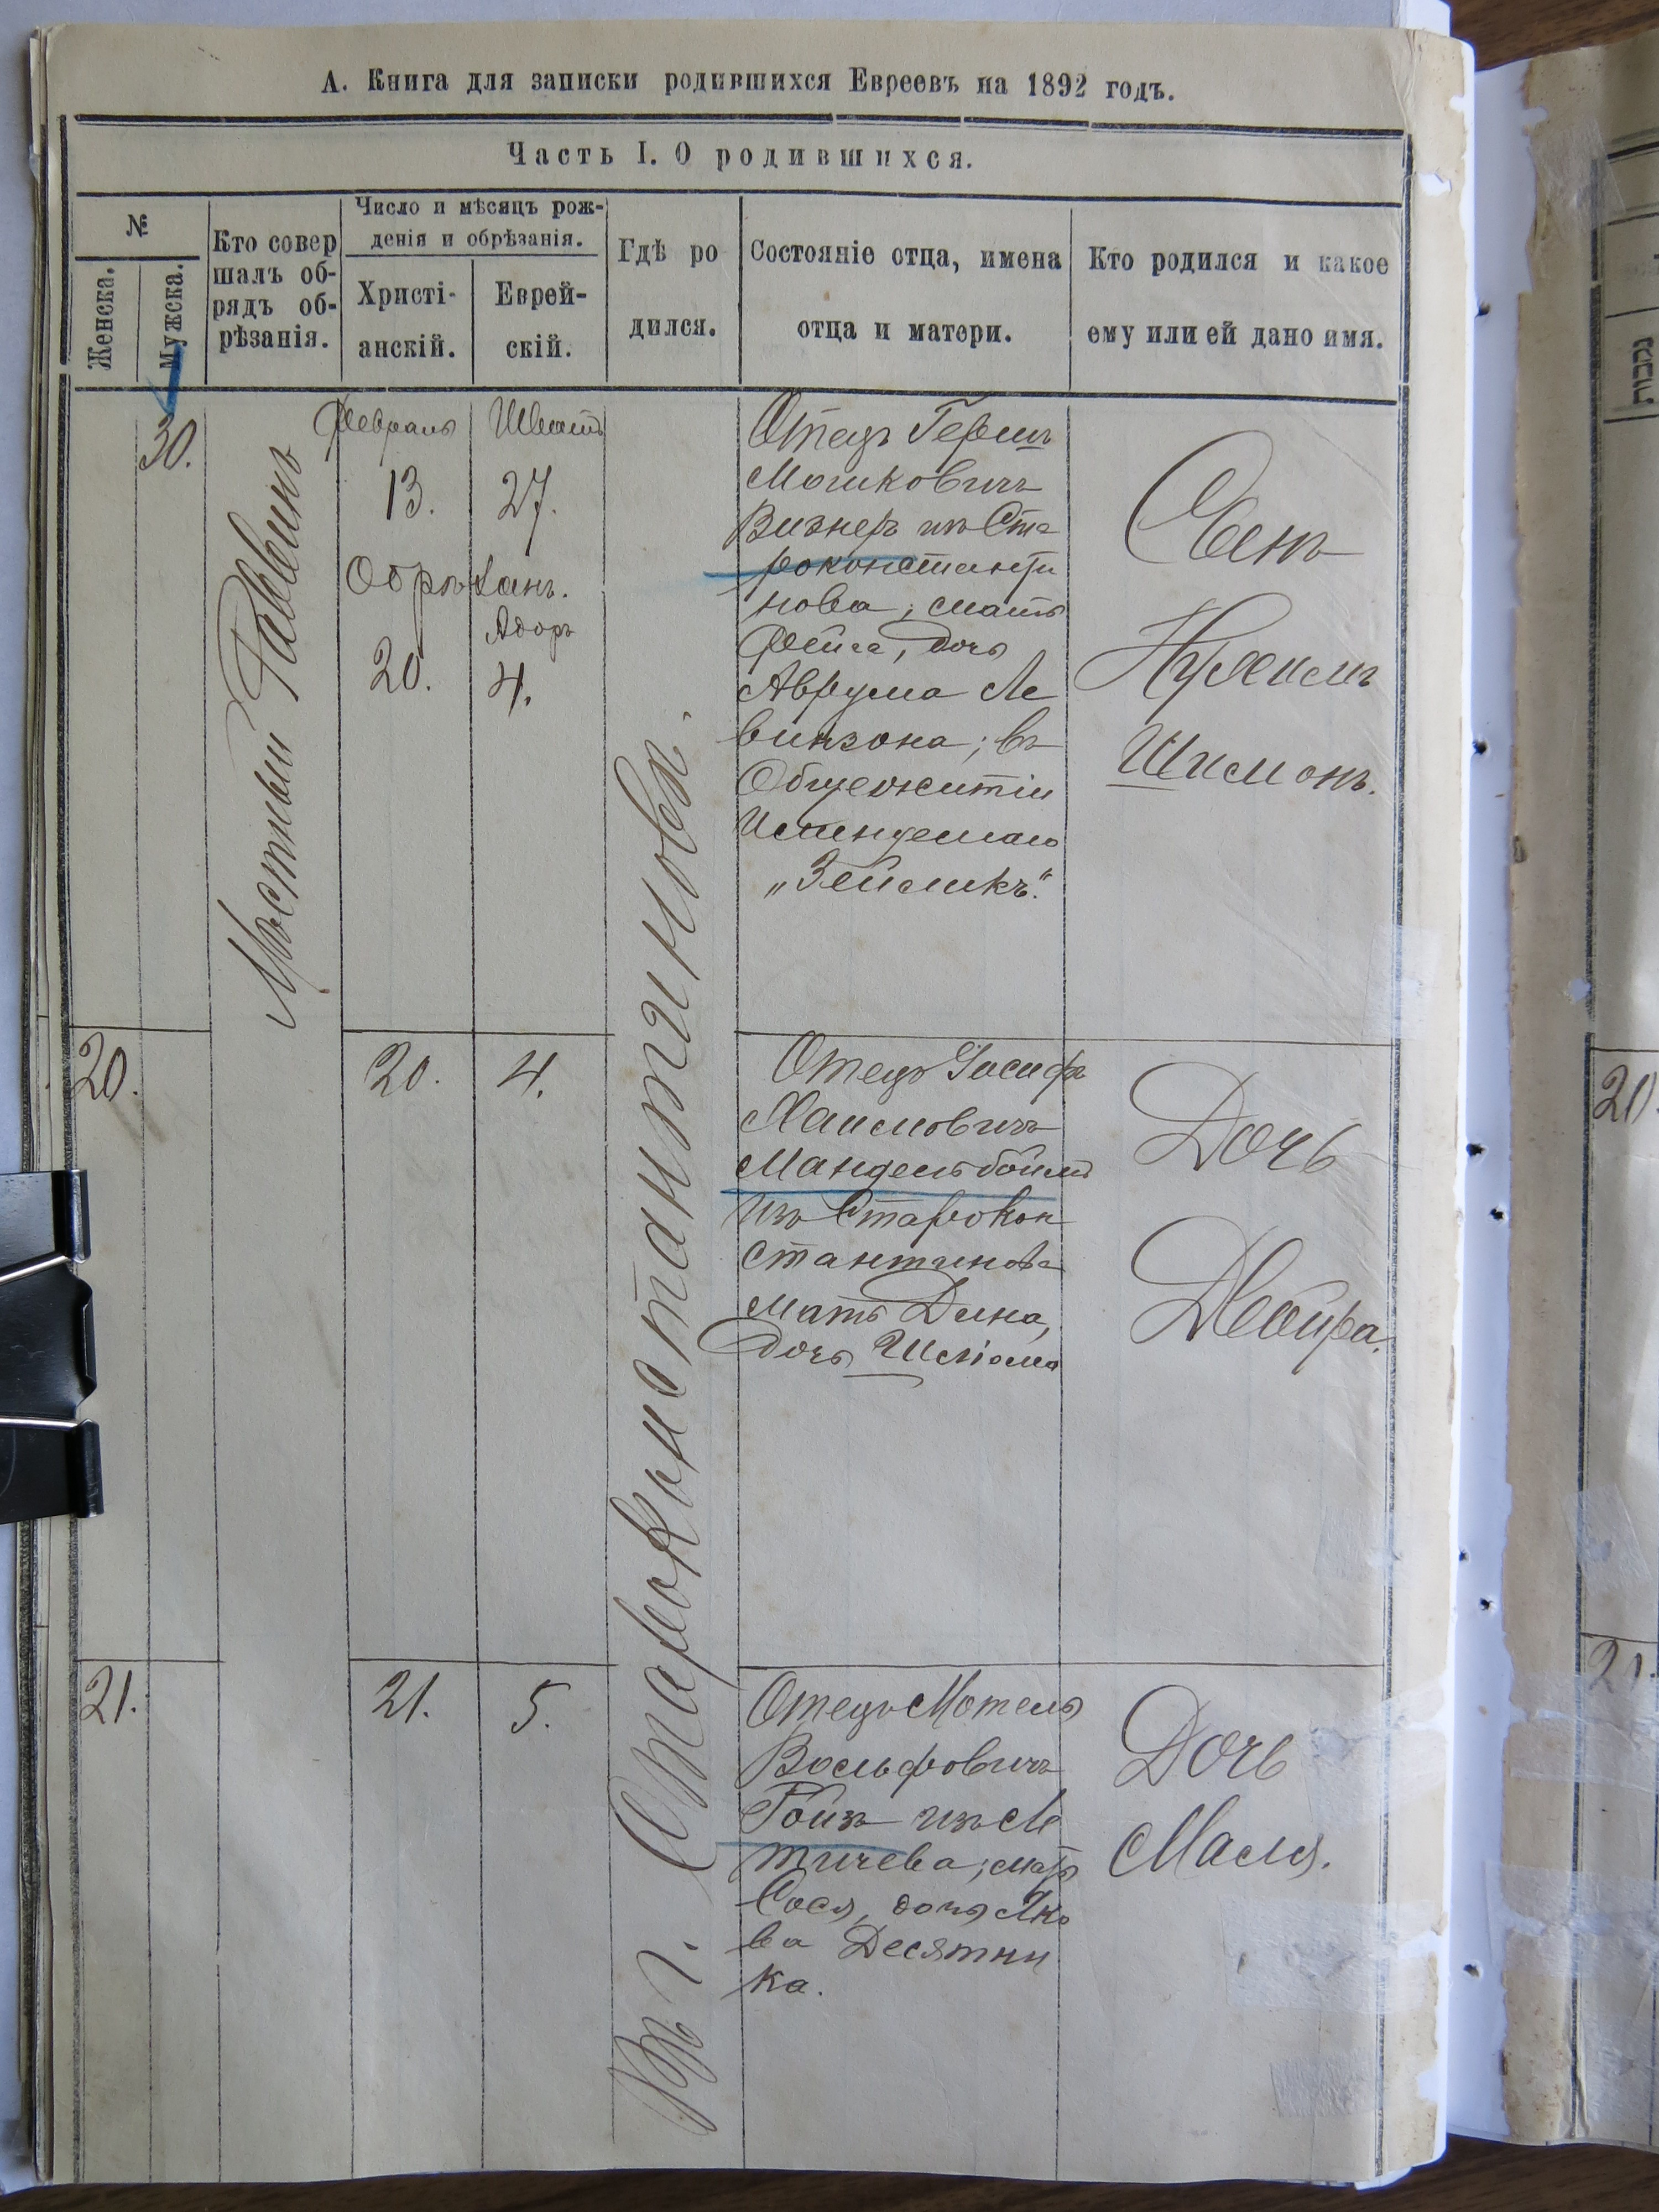 А. Книга для записки родившихся Евреевъ на 1892 годъ.
Часть I. О родившихся.
№
Женска.
Мужска.
Кто совер
шалъ об-
рядъ об-
рѣзанія.
Число и мѣсяцъ рож-
денія и обрѣзанія.
Христі-
анскій.
Еврей-
скій.
Гдѣ ро
дился.
Состояніе отца, имена
отца и матери.
Кто родился и какое
ему или ей дано имя.
30.
Мѣстный Раввинъ
Февраль
13.
Шватъ
27.
Обрѣзанъ.
20.
Адоръ
4.
Въ г. Староконстантиновѣ.
Отецъ Гершъ
Мошковичъ
Визнеръ изъ Ста
роконстанти
нова; мать
Фейга, дочь
Аврума Ле
винзона; въ
Общежитіи
„Зейликъ“.
Сынъ
Нухимъ
Шимонъ.
20.
20.
4.
Отецъ Іосифъ
Хаимовичъ
Мандельбоймъ
изъ Старокон
стантинова
мать Дина,
дочь Шліома
Дочь
Двойра.
21.
21.
5.
Отецъ Мотель
Вольфовичъ
Гойзъ изъ Ле
тичева; мать
Сося, дочь Яко
ва Десятни
ка.
Дочь
Маля.
20.
21.